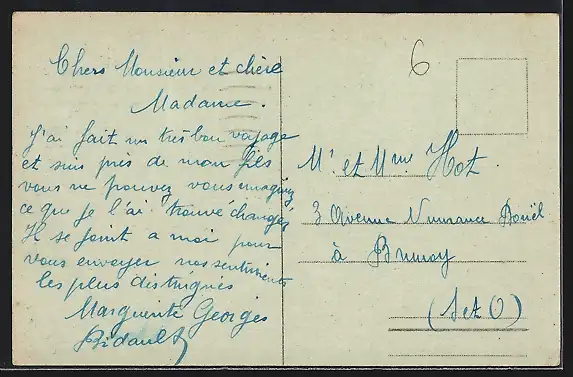 Chers Monsieur et chère
Madame.
J'ai fait un tres bon voyage
et suis près de mon fils
vous ne pouvez vous imaginez
ce que je l'ai trouvé changé,
Il se joint a moi pour
vous envoyer nos sentiments
les plus distingués
Marguerite Georges
Bidault
6
Mr et Mme Hot.
3 Avenue
à Brunoy
(S et O)